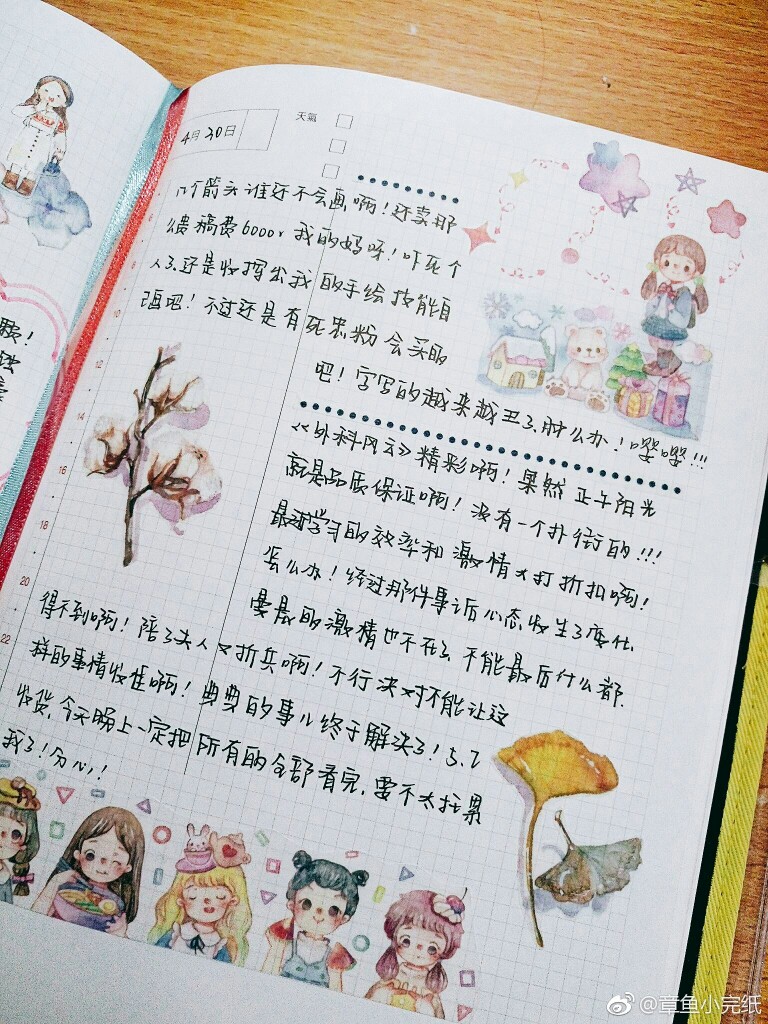 4月30日
天氣
几个箭头谁还不会画啊！还卖那
么贵稿费6000，我的妈呀！吓死个
人了、还是收挥出我的手绘技能自
画吧！不过还是有死忠粉会买的
吧！字写的越来越丑了、肿么办！嘤嘤!!!
《外科风云》精彩啊！果然正午阳光
就是品质保证啊！没有一个扑街的!!!
最近学习的效率和激情大打折扣啊！
怎么办！经过那件事后心态发生了变化
最的激情也不在了、不能最后什么都
得不到啊！陪了夫人又折兵啊！不行决对不能让这
样的事情发生啊！典典的事儿终于解决了！5.7
收货，今天晚上一定把所有的全部看完，要不太拖累
我了！分心！
6
8
10
12
14
16
18
20
22
@章鱼小完纸